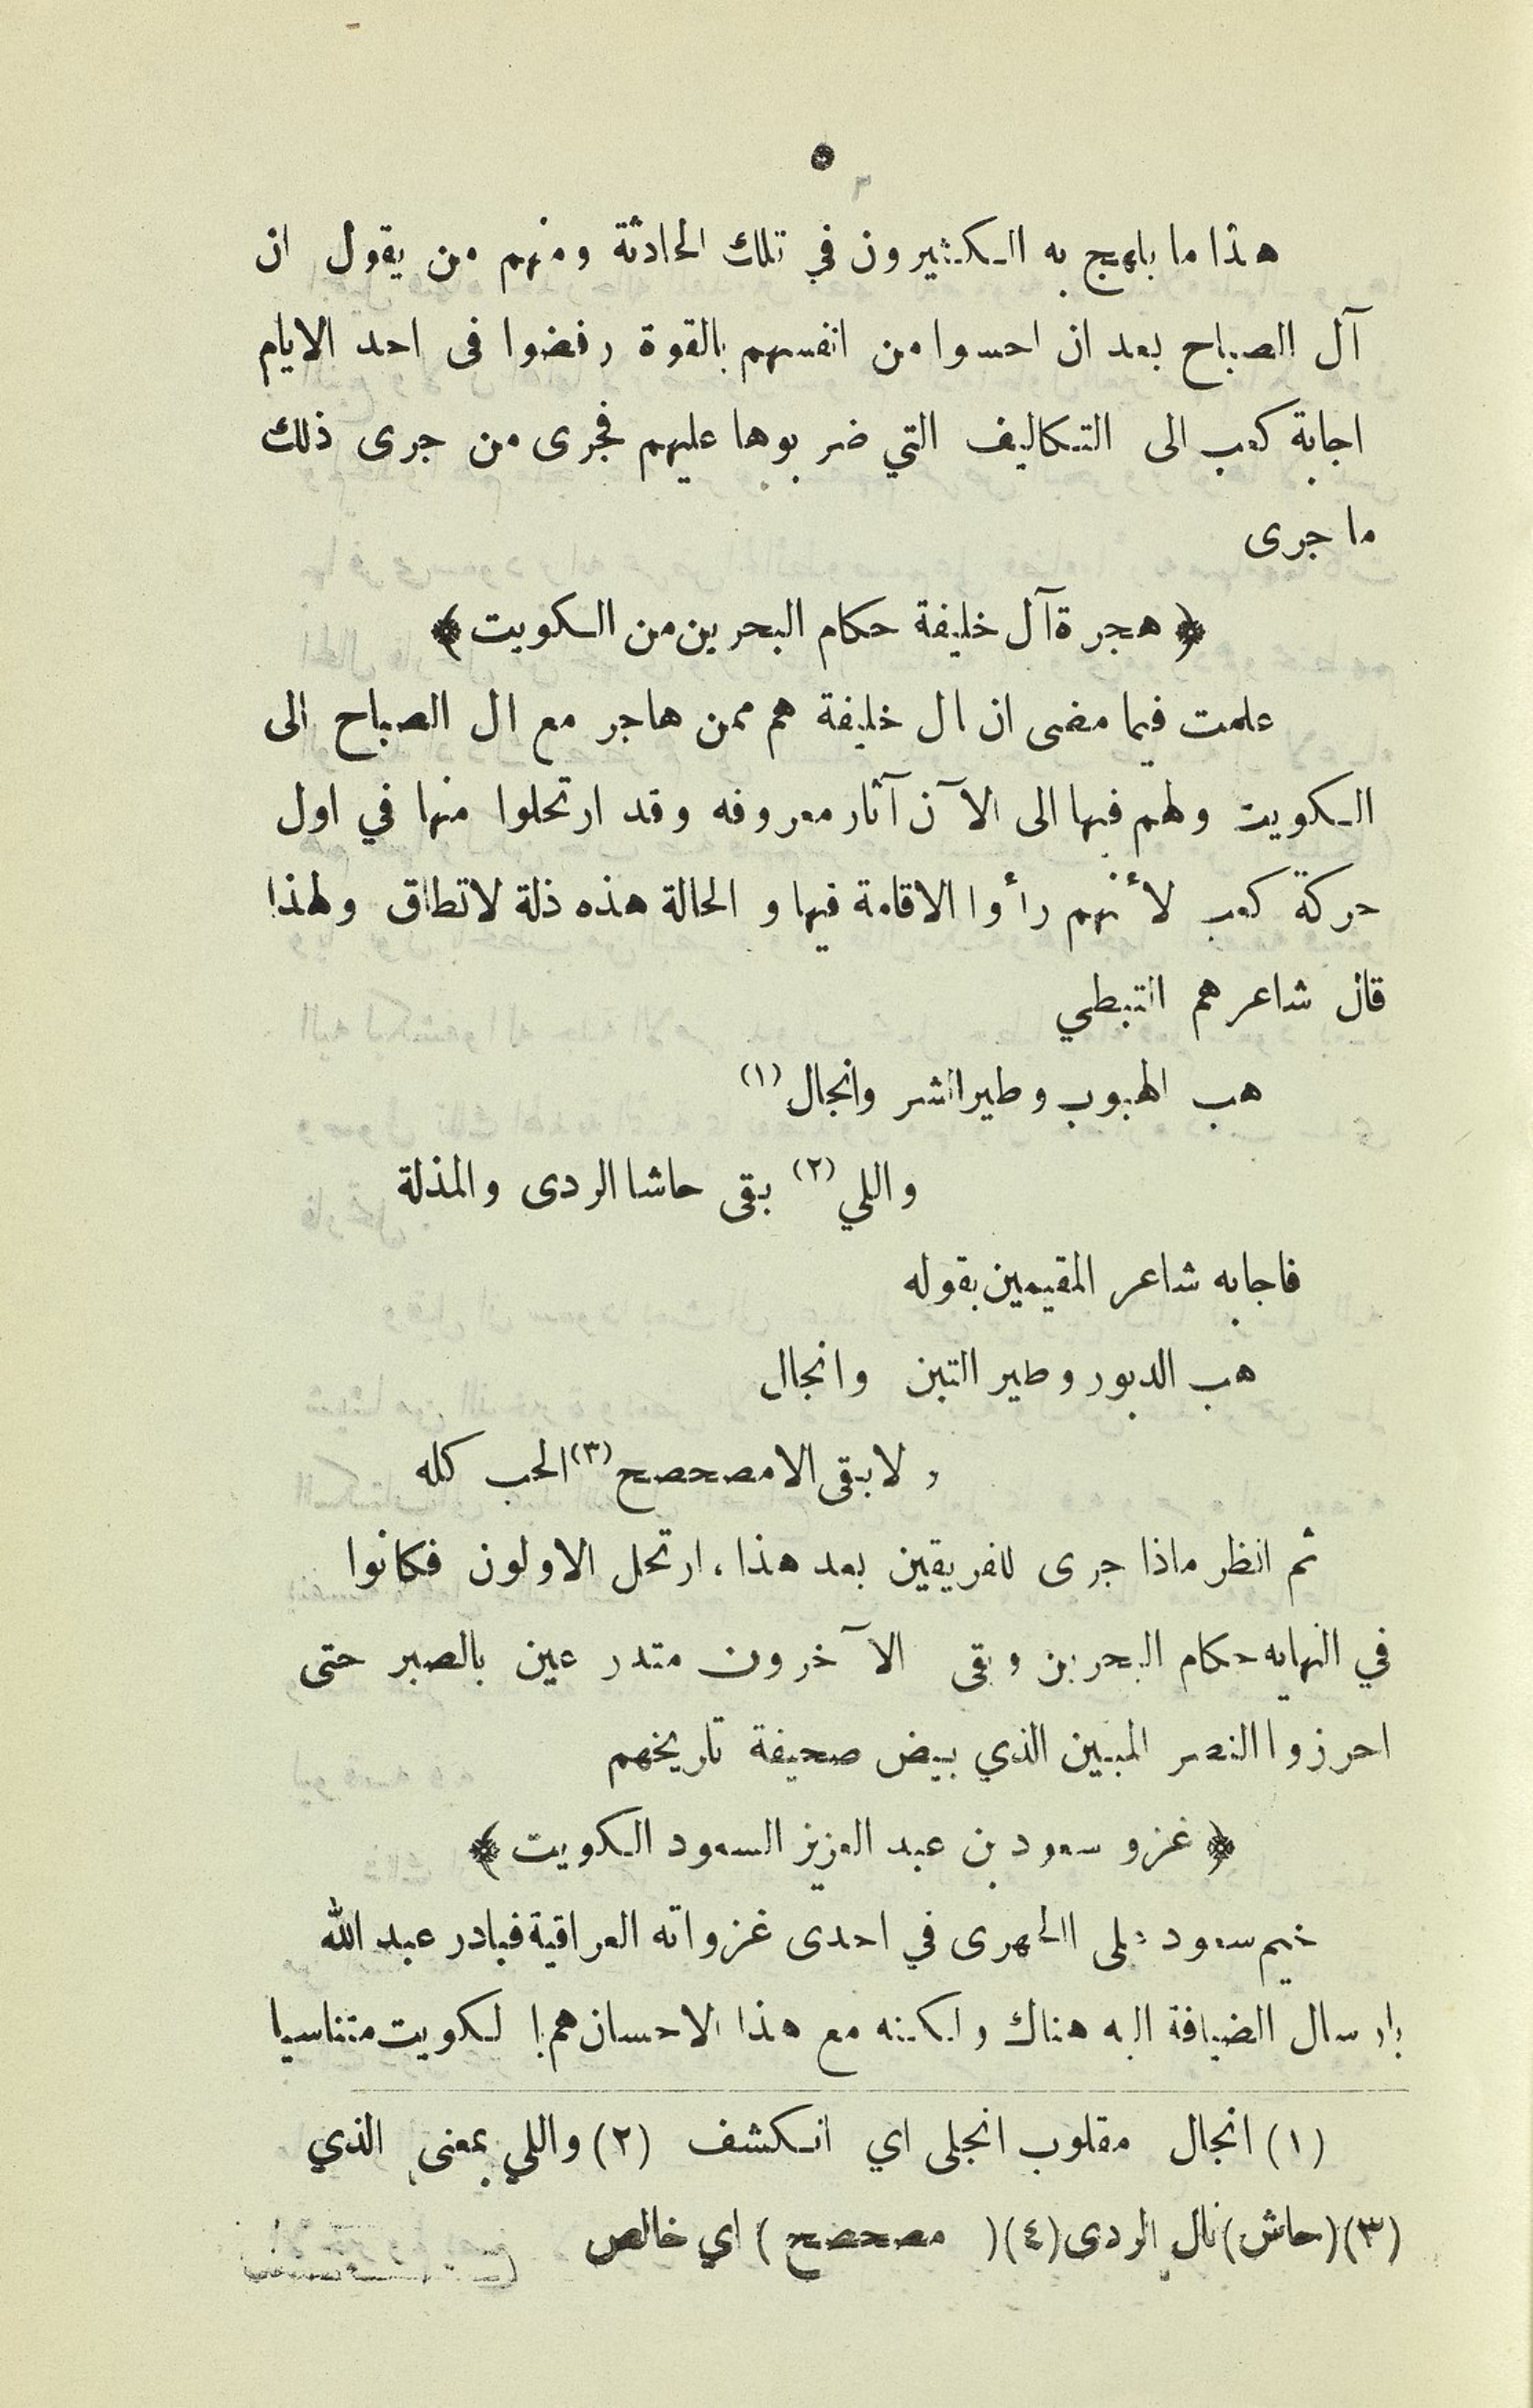 ٥
هذا ما يلهج به الكثيرون في تلك الحادثة ومنهم من يقول ان
آل الصباح بعد ان احسوا من انفسهم بالقوة رفضوا فى احد الايام
اجابة كعب الى التكاليف التي ضربوها عليهم فجرى من جرى ذلك
ما جرى
﴿ هجرة آل خليفة حكام البحرين من الكويت ﴾
علمت فيما مضى ان ال خليفة هم ممن هاجر مع ال الصباح الى
الكويت ولهم فيها الى الآن آثار معروفه وقد ارتحلوا منها في اول
حركة كعب لأنهم رأوا الاقامة فيها والحالة هذه ذلة لاتطاق ولهذا
قال شاعرهم النبطي
هب الهبوب وطير الشر وانجال (١)
واللي (٢) بقى حاشا الردى والمذلة
فاجابه شاعر المقيمين بقوله
هب الدبور وطير التبن وانجال
ولا بقى الا مصحصح (٣) الحب كله
ثم انظر ماذا جرى للفريقين بعد هذا ، ارتحل الاولون فكانوا
في النهايه حكام البحرين وبقى الآخرون متدرعين بالصبر حتى
احرزوا النصر المبين الذي بيض صحيفة تاريخهم
﴿ غزو سعود بن عبد العزيز السعود الكويت ﴾
خيم سعود على الجهرى في احدى غزواته العراقية فبادر عبد الله
بارسال الضيافة اليه هناك ولكنه مع هذا الاحسان هم بالكويت متناسيا
(١) انجال مقلوب انجلى اي انكشف (٢) واللي بمعنى الذي
(٣) (حاش) نال الردى (٤) ( مصحصح ) اي خالص